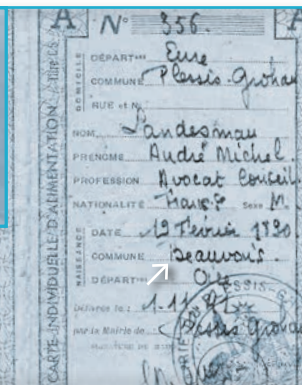 A N° 356. A
CARTE INDIVIDUELLE D'ALIMENTATION
DOMICILE
DÉPARTt Eure
COMMUNE Plessis-Grohan
RUE et N°
NOM Landesmau
PRÉNOMS André Michel.
PROFESSION Avocat Conseil
NATIONALITÉ Franç? Sexe M.
NAISSANCE
DATE 19 Février 1890
COMMUNE Beauvais.
DÉPARTt Oise
Délivrée le : 1.11
par la Mairie de Plessis Grohan